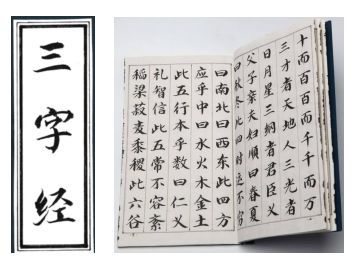 三字经
十而百百而千千而万
三才者天地人三光者
日月星三纲者君臣义
父子亲夫妇顺曰春夏
曰秋冬此四时运不穷
曰南北曰西东此四方
应乎中曰水火木金土
此五行本乎数曰仁义
礼智信此五常不容紊
稻粱菽麦黍稷此六谷